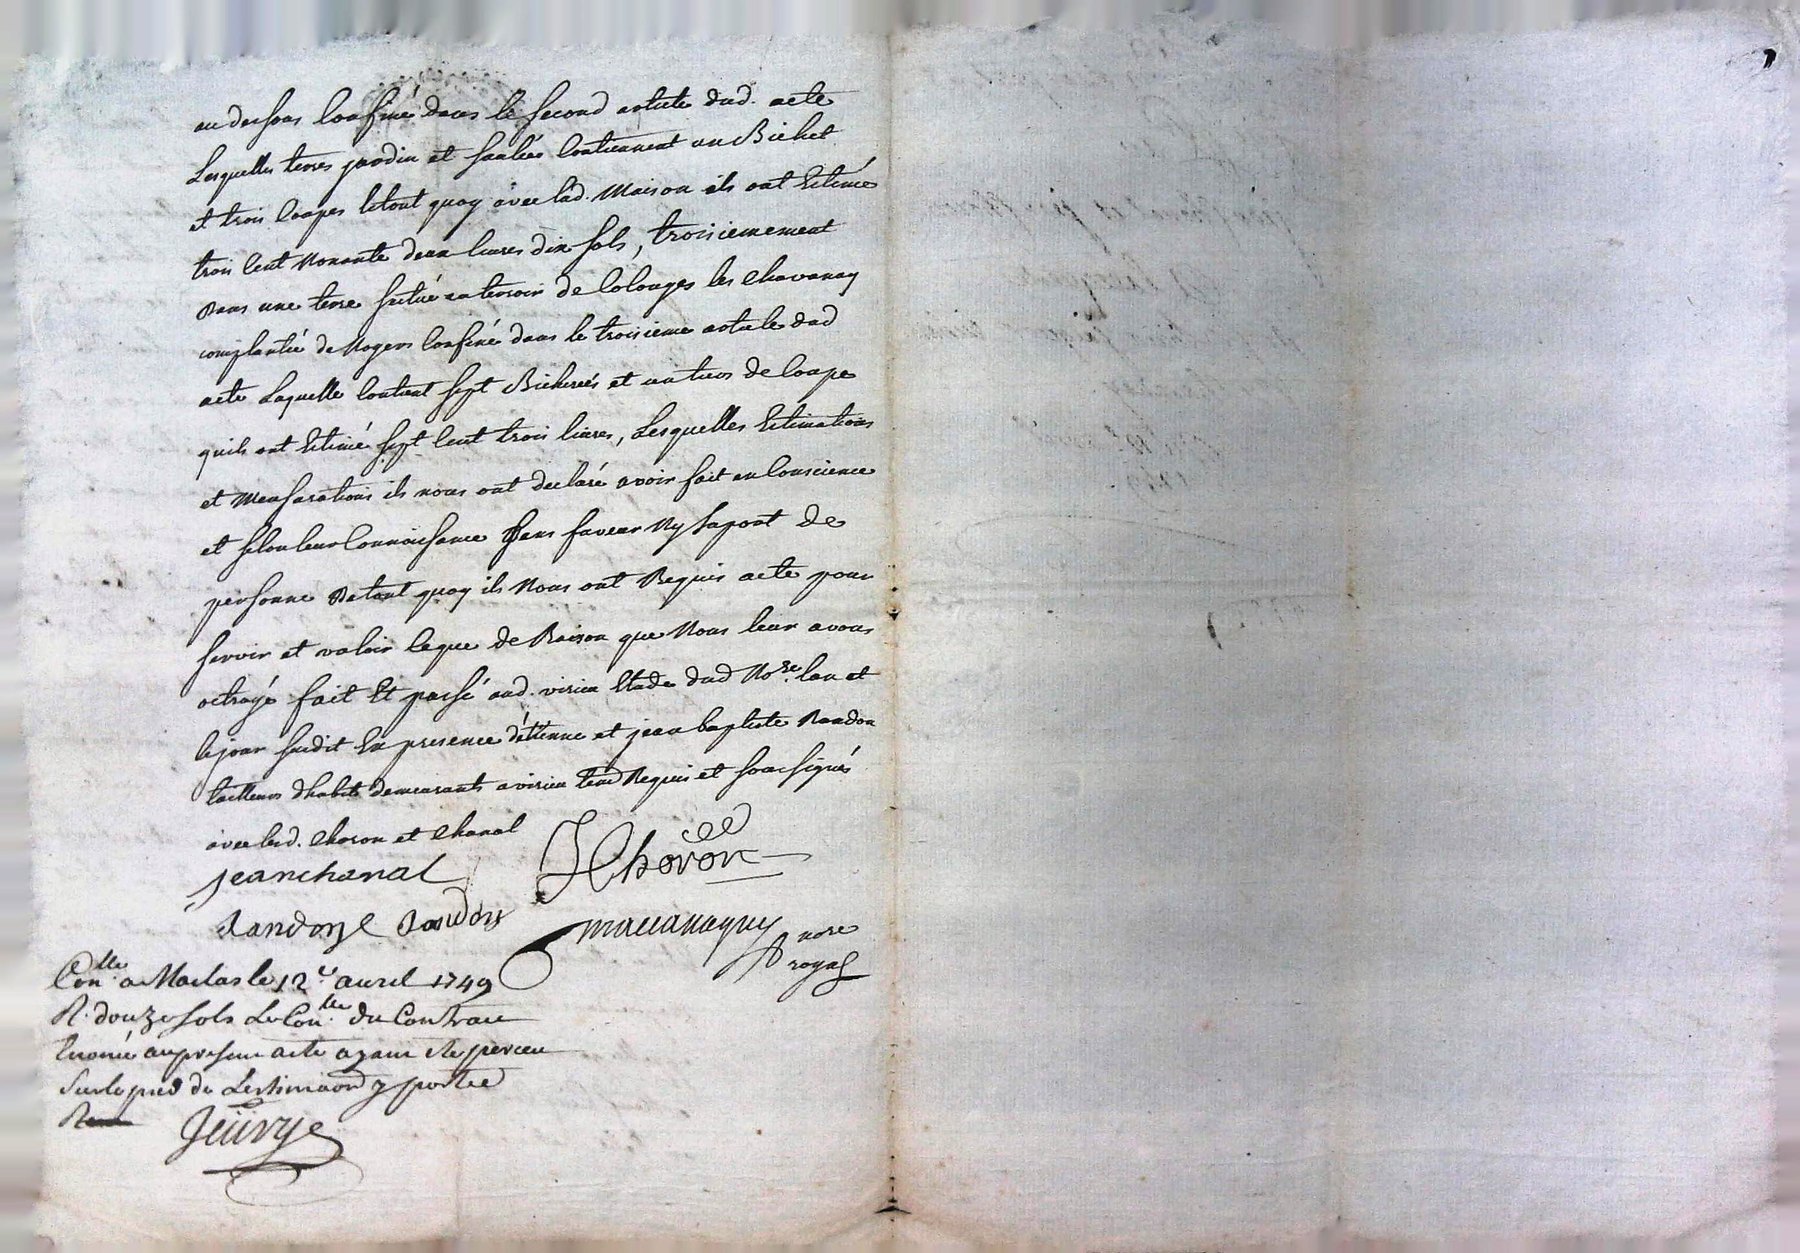 au dessous confiné dans le second article dud. acte
Lesquelles terres jardin et saulées contiennent un Bichet
et trois coupes letout quoy avec lad. Maison ils ont Estimé
trois cent Nonante deux livres dix sols, troisiemement
dans une terre scituée au terroir de Colonges les Chavanay
complantée de Noyers confiné dans le troisieme article dud
acte Laquelle contient sept Bicherées et un tiers de coupe
quils ont Estimé sept cent trois livres, Lesquelles Estimations
et Mensurations ils nous ont declaré avoir fait en Conscience
et selon leur Connoissance sans faveur Ny suport de
personne Detout quoy ils Nous ont Requis acte pour
servir et valoir ceque de Raison que Nous leur avons
octroyé fait Et passé aud. virieu Etude dud No.re lan et
le jour susdit En presence d'étienne et jean baptiste Randon
tailleurs dhabits demeurants a virieu tem Requis et soussignés
avec lesd. Choron et Chanal
jean chanal JChoron
Randon Randon
maccanaguy nore
royal
Con.lle a Maclas le 12.e avril 1749
R. douze sols Le Con.lle du Contrat
Enoncé au present acte ayant ete perceu
Sur le pied de L'estimaon y portée
Jeurye